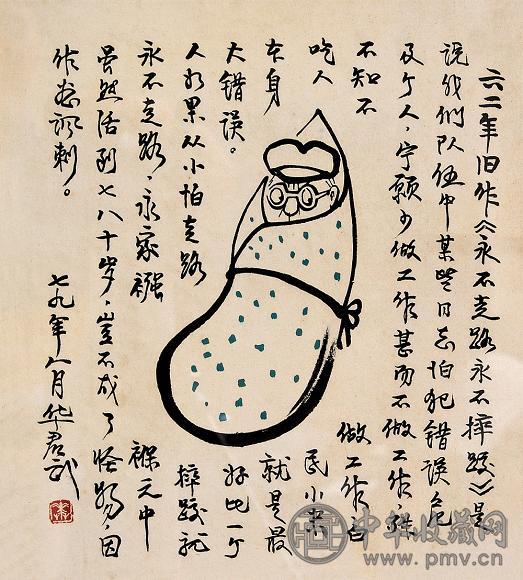 六二年旧作《永不走路永不摔跤》是
说我们队伍中某些同志怕犯错误危
及个人，宁愿少做工作甚而不做工作，殊
不知不做工作白
吃人民小米
本身就是最
大错误。好比一个
人如果从小怕走路摔跤就
永不走路，永裹襁褓之中
虽然活到七八十岁，岂不成了怪物，因
作画讽刺。
七九年八月华君武
中华收藏网
www.pmv.cn